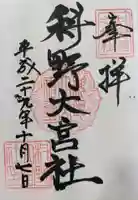 奉拝
科野大宮社
平成二十九年十月七日